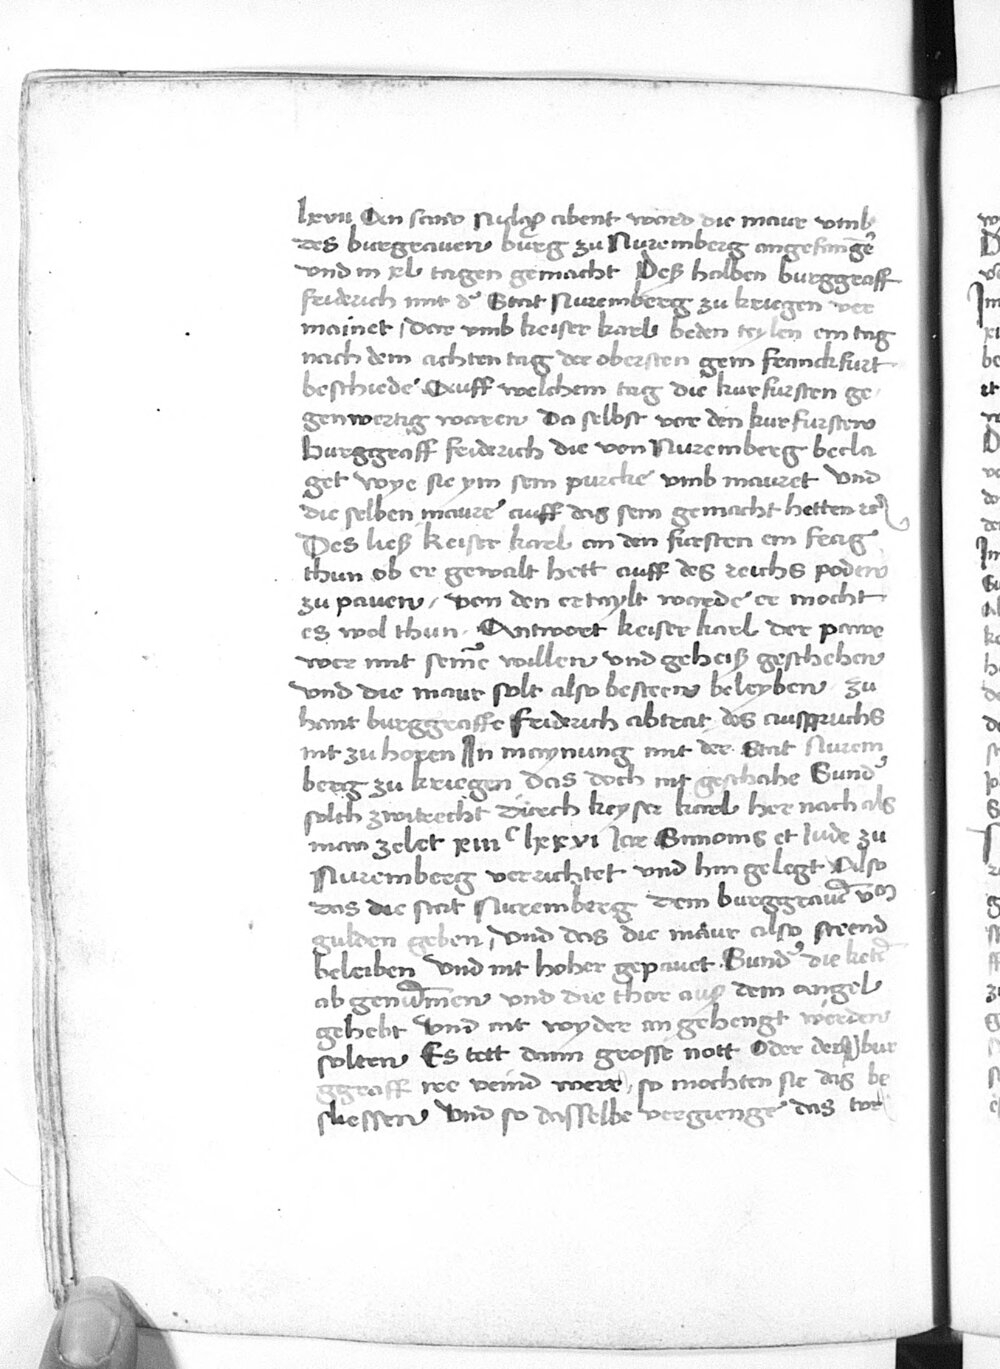 lxvii An sand Niclaß abent ward die maur vmb
des burgrauen burg zu Nuremberg angefange
vnd in xl tagen gemacht Deß halben burggraff
friderich mit d' Stat Nuremberg zu kriegen ver
mainet, dar vmb keiser karl beden teylen ein tag
nach dem achten tag der obersten gein franckfurt
beschiede Auff welchem tag die kurfursten ge
genwertig waren Do selbst vor den kurfursten
burggraff friderich die von Nuremberg becla
get wye sie ym sein purcke vmb mauret vnd
die selben maure auff das sein gemacht hetten
Des ließ keiser karl an den fursten ein frag
thun ob er gewalt hett auff des reichs poden
zu pauen, von den ertaylt warde er mocht
es wol thun. Antwort keiser karl der pawe
wer mit seine willen vnd geheiß geschehen
vnd die maur solt also besteen beleyben zu
hant burggraffe friderich abtrat des ausspruchs
nit zu horen In maynung mit der Stat Nurem
berg zu kriegen das doch nit geschahe Sund'
solch zwitrecht durch keyser karl her nach als
man zelet xiii c lxxvi Jar Simonis et Jude zu
Nuremberg verrichtet vnd hin gelegt Also
das die stat Nuremberg dem burggraue
gulden geben, vnd das die maur also steend
beleiben vnd nit hoher gepauet. Sund' die kete
ab genumen vnd die thor auß dem angel
gehebt vnd nit wyder an gehengt werden
solten Es tett dann grosse nott Oder der bur
ggraff ire veind were, so mochten sie das be
sliessen vnd so dasselbe vergienge das tor